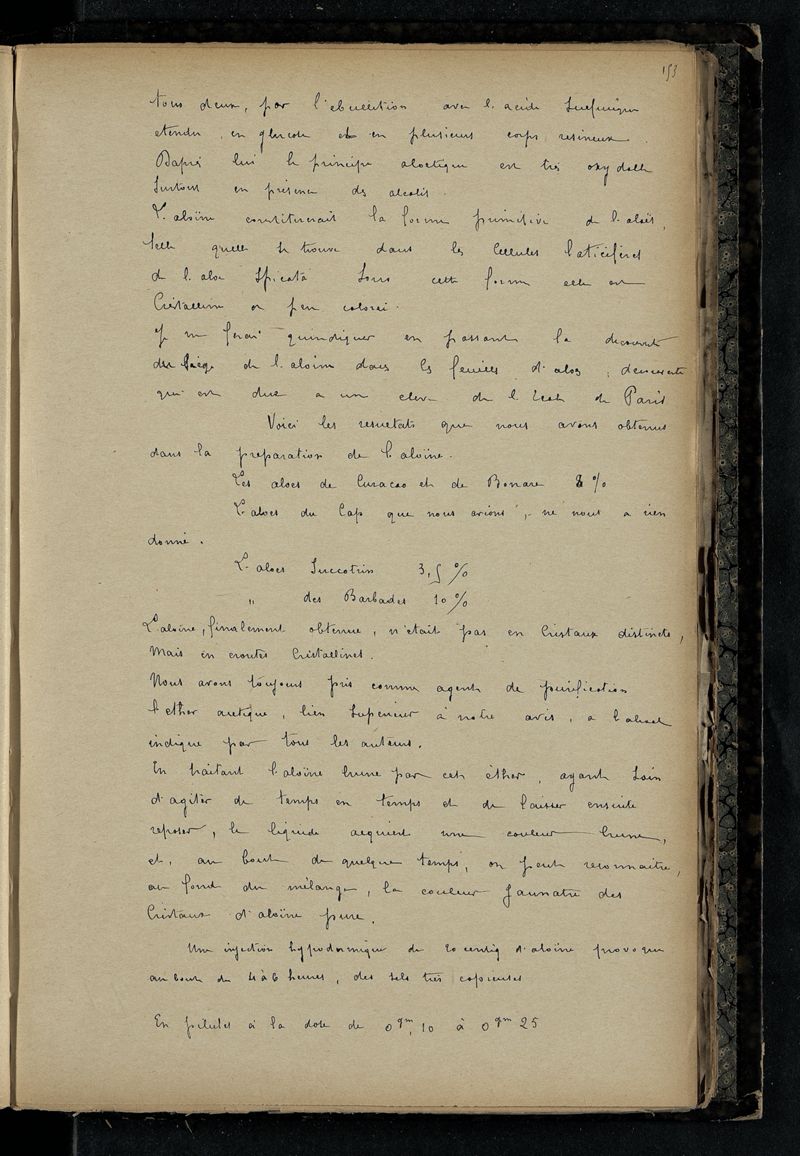 153
tous deux, par l'ebullition avec l'acide sulfurique
etendu, en glucose et en plusieurs corps resineux.
Dapres lui le principe aloetique est très oxydable
surtout en présence des alcalis.
L'aloïne constituerait la forme primitive de l'aloès,
telle quelle se trouve dans les cellules laticifères
de l'aloe spicata Sous cette forme elle est
cristalline et peu colorée.
Je ne ferai qu'indiquer en passant la découverte
du siège de l'aloine dans les feuilles d'aloes; découverte
qui est due a un eleve de l'Ecole de Paris
Voici les resultats que nous avons obtenus
dans la preparation de l'aloïne.
Les aloes de Curacao et de Bonare 8 %
L'aloes du Cap que nous avions, ne nous a rien
donné.
L'aloes Succotrin 3,5 %
" des Barbades 10 %
L'aloïne, finalement obtenue, n'était pas en cristaux distincts,
Mais en croutes cristallines.
Nous avons toujours pris comme agent de purification
l'ether acetique, bien superieur à notre avis, a l'alcool
indiqué par tous les auteurs.
En traitant l'aloïne brune par cet éther, ayant soin
d'agiter de temps en temps et de laisser ensuite
reposer, le liquide acquiert une couleur brune,
et, au bout de quelque temps, on peut reconnaitre,
au fond du mélange, la couleur jaunatre des
cristaux d'aloïne pure.
Une injection hypodermique de 20 centig d'aloïne provoque
au bout de 4 à 6 heures, des selles très copieuses
En pilules à la dose de 0gm,10 à 0gm 25